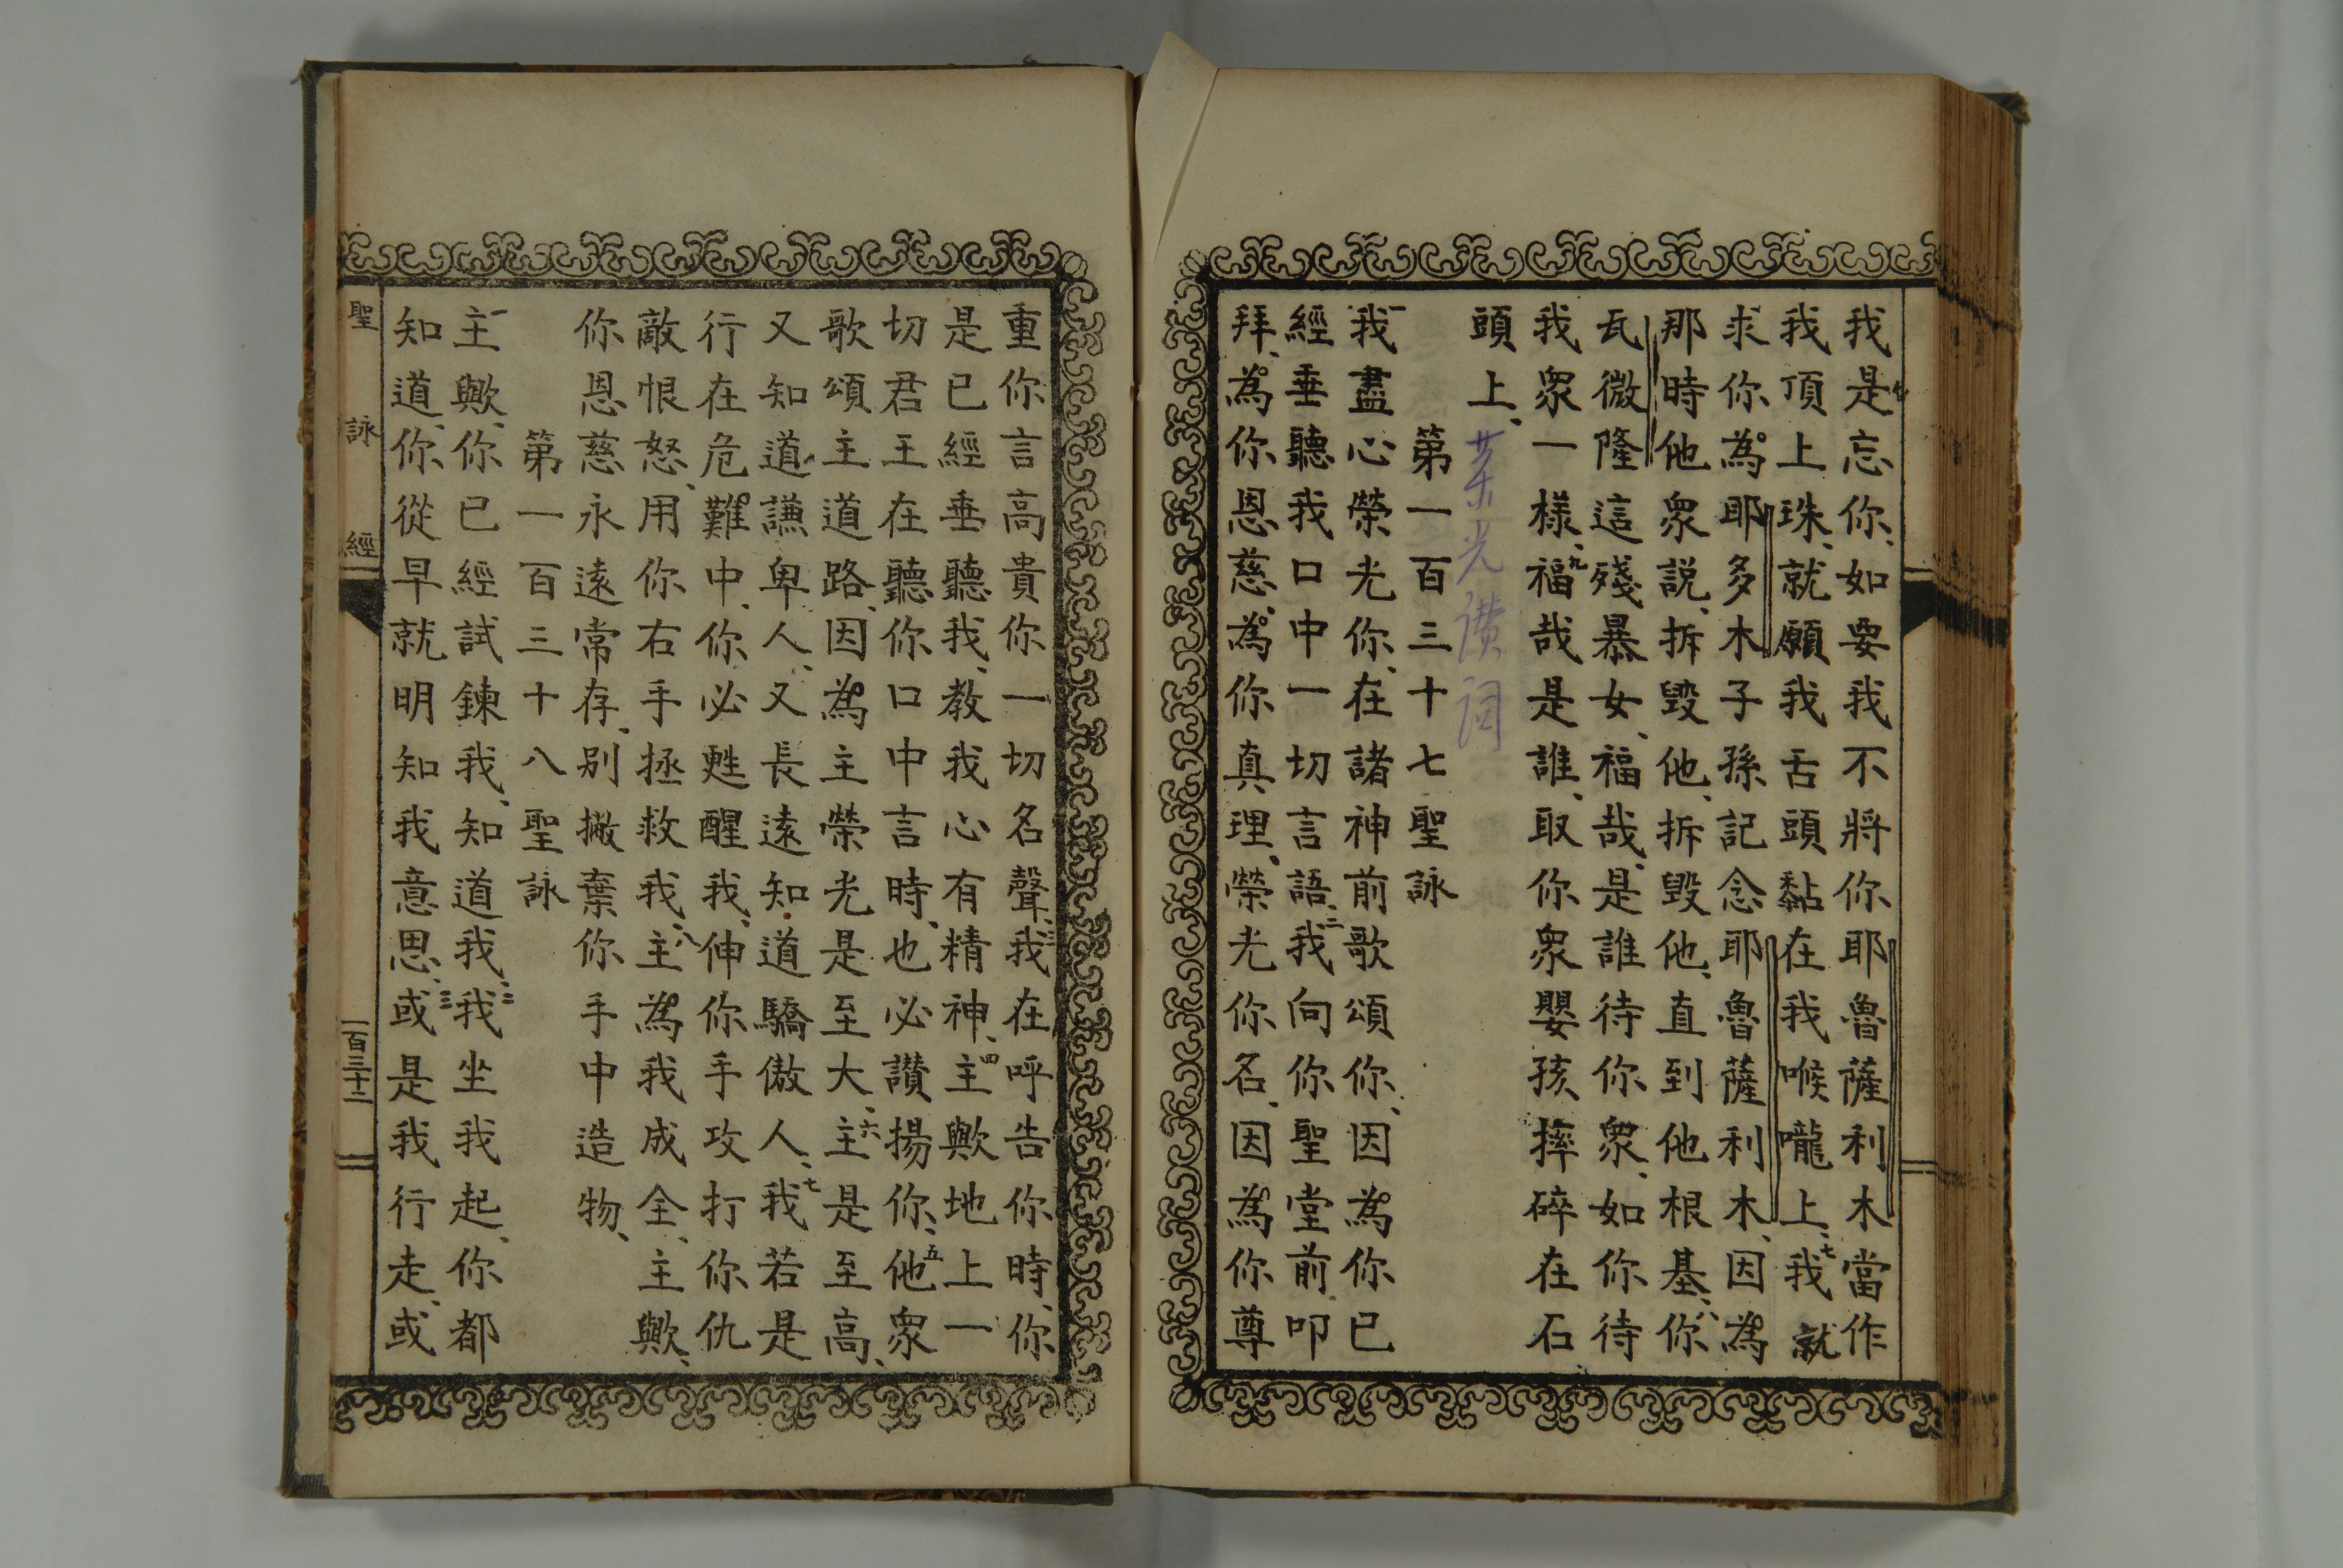 我是忘你、如要我不將你耶魯薩利木當作
我頂上珠、就願我舌頭黏在我喉嚨上、七我就
求你為耶多木子孫記念耶魯薩利木、因為
那時他衆説、拆毀他、拆毀他、直到他根基、八你
瓦微隆這殘暴女、福哉、是誰待你衆、如你待
我衆一樣、九福哉是誰、取你衆嬰孩摔碎在石
頭上、
第一百三十七聖詠
一我盡心榮光你、在諸神前歌頌你、因為你已
經垂聽我口中一切言語、二我向你聖堂前、叩
拜、為你恩慈、為你真理、榮光你名、因為你尊
重你言高貴你一切名聲、三我在呼告你時、你
是已經垂聽我、教我心有精神、四主歟地上一
切君王在聽你口中言時、也必讃揚你、五他衆
歌頌主道路、因為主榮光是至大、六主是至高、
又知道謙卑人、又長遠知道驕傲人、七我若是
行在危難中、你必甦醒我、伸你手攻打你仇
敵恨怒、用你右手拯救我、八主為我成全、主歟、
你恩慈永遠常存、别撇棄你手中造物、
第一百三十八聖詠
一主歟、你已經試鍊我、知道我、二我坐我起、你都
知道、你從早就明知我意思、三或是我行走、或
聖詠經
一百三十二